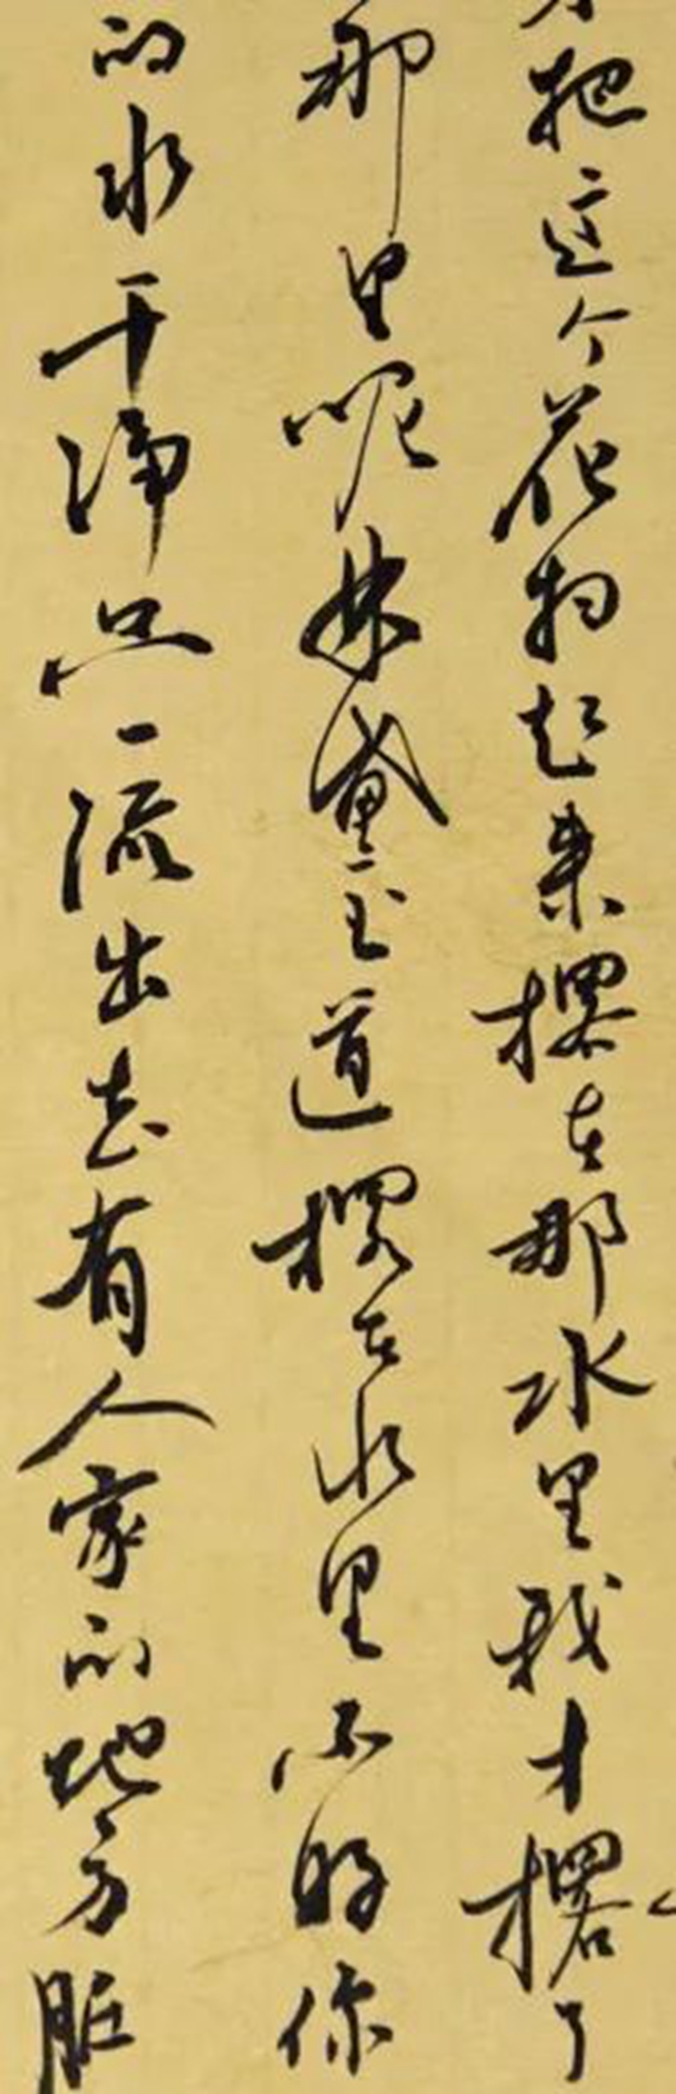 把这个花扫起来撂在那水里我才撂了
那里呢林黛玉道撂在水里不好你
的水干净只一流出去有人家的地方脏